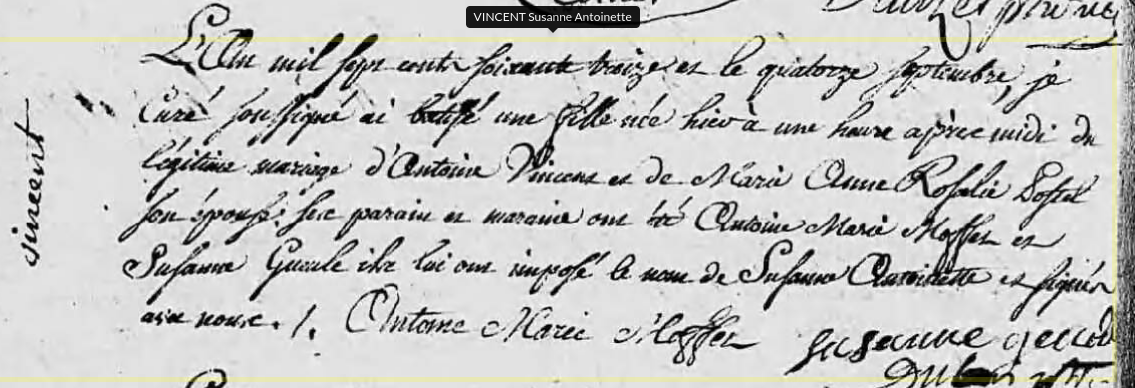 VINCENT Susanne Antoinette
L'An mil sept cents soixante treize et le quatorze septembre, je
Curé soussigné ai batisé une fille née hier à une heure après midi du
légitime mariage d'Antoine Vincent et de Marie Anne Rosalie Postel
son épouse: ses parain et maraine ont été Antoine Marie Moffet et
Susanne Gueule ils lui ont imposé le nom de Susanne Antoinette et signés
avec nous. /. Antoine Marie Moffet susanne
vincent